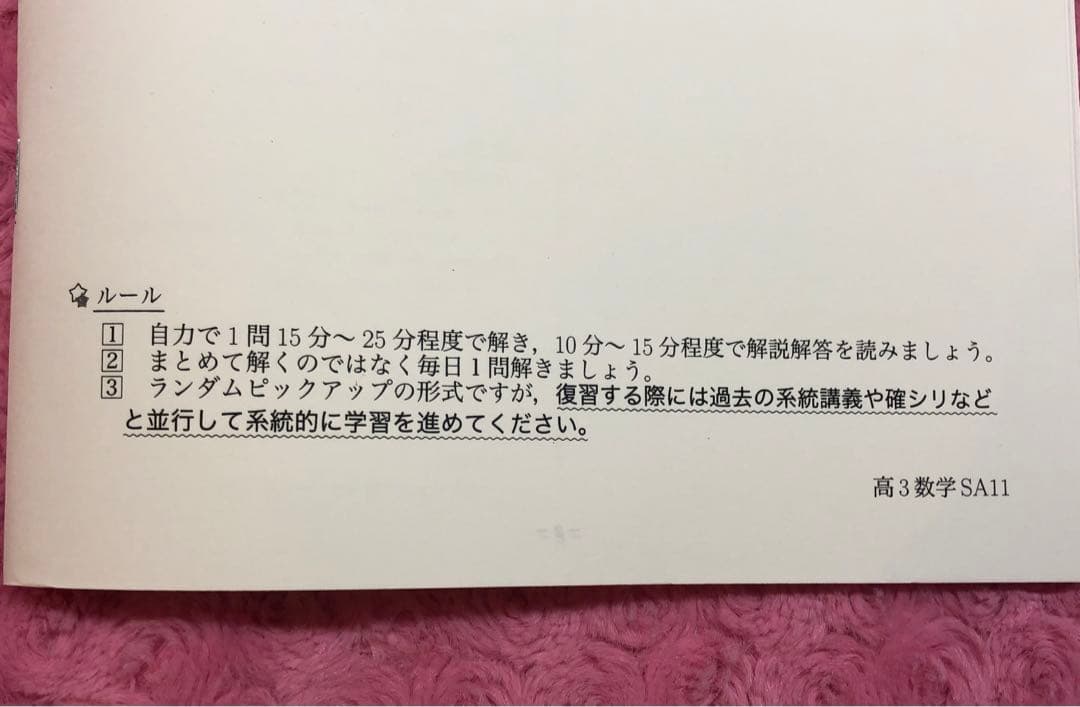 ルール
1 自力で1問15分～25分程度で解き，10分～15分程度で解説解答を読みましょう。
2 まとめて解くのではなく毎日1問解きましょう。
3 ランダムピックアップの形式ですが，復習する際には過去の系統講義や確シリなど
と並行して系統的に学習を進めてください。
高3数学SA11